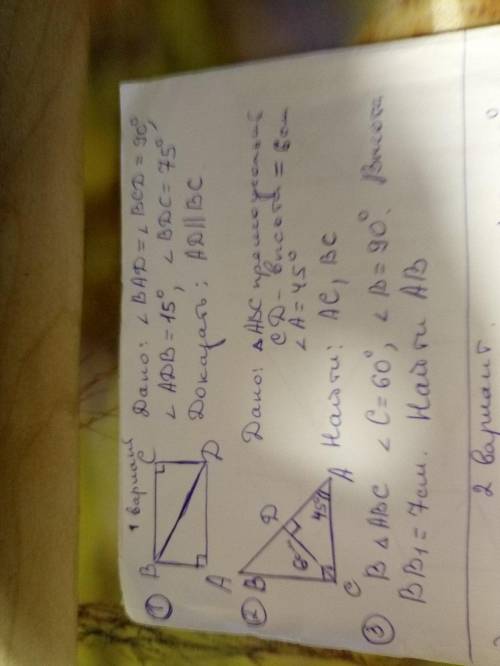 1 вариант
① Дано: ∠BAD = ∠BCD = 90°
∠ADB = 15°, ∠BDC = 75°,
Доказать: AD || BC
B C A D
② Дано: △ABC прямоугольный
CD - высота = 8см
∠A = 45°
Найти: AC, BC
B D A C 8 45°
③ В △ABC ∠C = 60°, ∠B = 90°. Высота
BB₁ = 7см. Найти AB
2 вариант